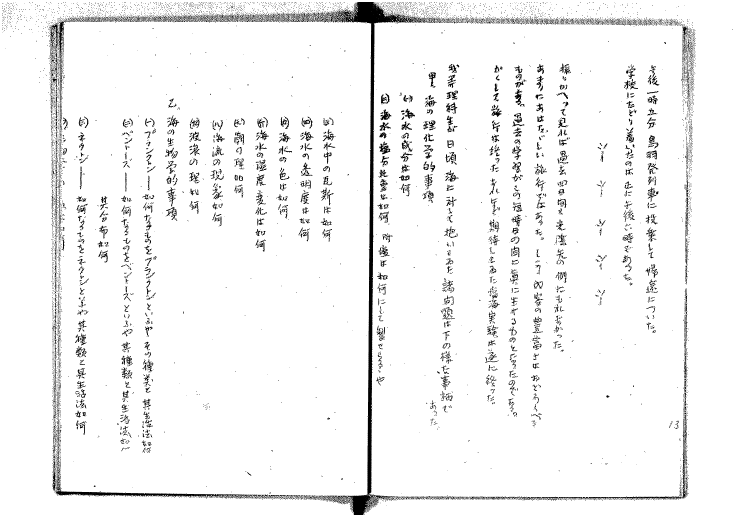 午後一時五分鳥羽発列車に投乗して帰途についた。
学校にたどり着いたのは正に午後六時であった。
振りかへって見れば過去四日間も光陰矢の例にもれなかった。
あまりにあはたゞしい旅行ではあった。しかし内容の豊富さはおどろくべき
ものがある。過去の学習がこの短時日の間に真に生きるものとなったのである。
かくして旅行は終った。
我等理科生が日頃海に対して抱いてゐた諸問題は下の様な事柄であった
甲、海の理化学的事項
(一) 海水の成分は如何
(二) 海水の塩分比重は如何
(三) 海水中の瓦斯は如何
(四) 海水の透明度は如何
(五) 海水の色は如何
(六) 海水の温度変化は如何
(七) 潮の理如何
(八) 海流の現象如何
(九) 波浪の理如何
乙、海の生物学的事項
(一) プランクトン――如何なるものをプランクトンといふや その種類と其生活法如何
(二) ベントース――如何なるものをベントースといふや 其種類と其生活法如何
其分布如何
(三) ネクトン――如何なるものをネクトンといふや其種類と其生活法如何
13